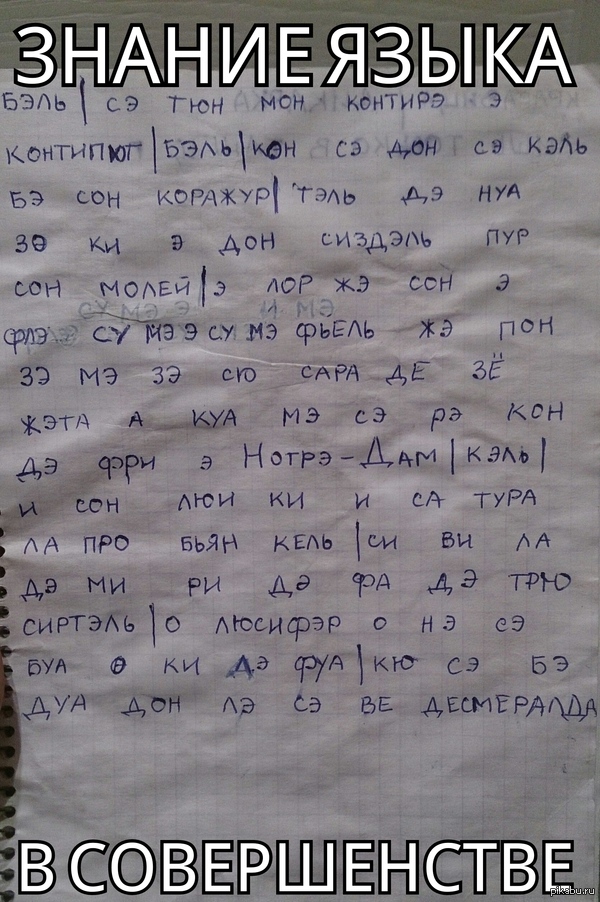 ЗНАНИЕ ЯЗЫКА
БЭЛЬ | СЭ ТЮН МОН КОНТИРЭ Э
КОНТИПЮГ | БЭЛЬ | КОН СЭ ДОН СЭ КЭЛЬ
БЭ СОН КОРАЖУР | ТЭЛЬ ДЭ НУА
ЗО КИ Э ДОН СИЗДЭЛЬ ПУР
СОН МОЛЕЙ | Э ЛОР ЖЭ СОН Э
ФЛЭ СУ МЭ Э СУ МЭ ФЬЕЛЬ ЖЭ ПОН
ЗЭ МЭ ЗЭ СЮ САРА ДЕ ЗЁ
ЖЭТА А КУА МЭ СЭ РЭ КОН
ДЭ ФЭРИ Э НОТРЭ-ДАМ | КЭЛЬ |
И СОН ЛЮИ КИ И СА ТУРА
ЛА ПРО БЬЯН КЕЛЬ | СИ ВИ ЛА
ДЭ МИ РИ ДЭ ФА ДЭ ТРЮ
СИРТЭЛЬ | О ЛЮСИФЭР О НЭ СЭ
БУА О КИ ДЭ ФУА | КЮ СЭ БЭ
ДУА ДОН ЛЭ СЭ ВЕ ДЕСМЕРАЛДА
В СОВЕРШЕНСТВЕ
pikabu.ru